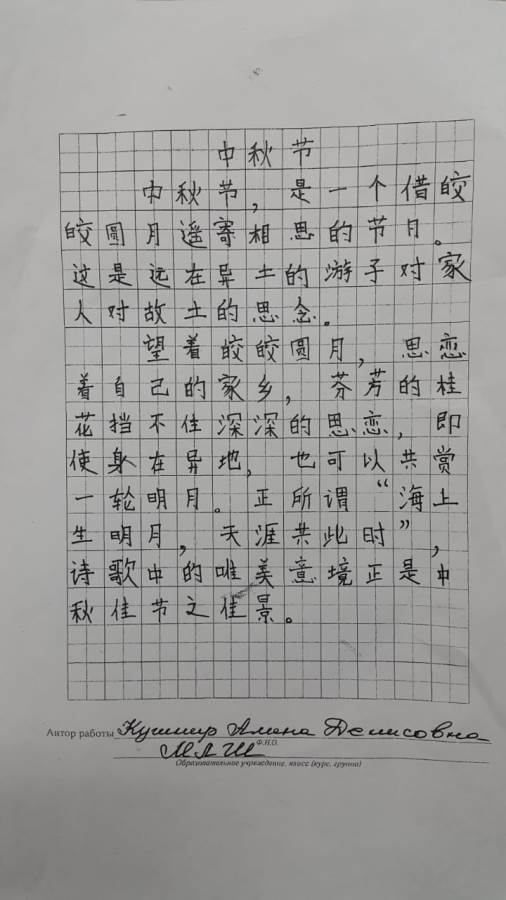 中秋节
中秋节，是一个借皎
皎圆月遥寄相思的节月。
这是远在异土的游子对家
人对故土的思念。
望着皎皎圆月，思恋
着自己的家乡，芬芳的桂
花挡不住深深的思恋，即
使身在异地，也可以共赏
一轮明月。正所谓“海上
生明月，天涯共此时”，
诗歌中的唯美意境正是中
秋佳节之佳景。
Автор работы Кушнир Алена Денисовна
Ф.И.О.
МЛШ
Образовательное учреждение, класс (курс, группа)